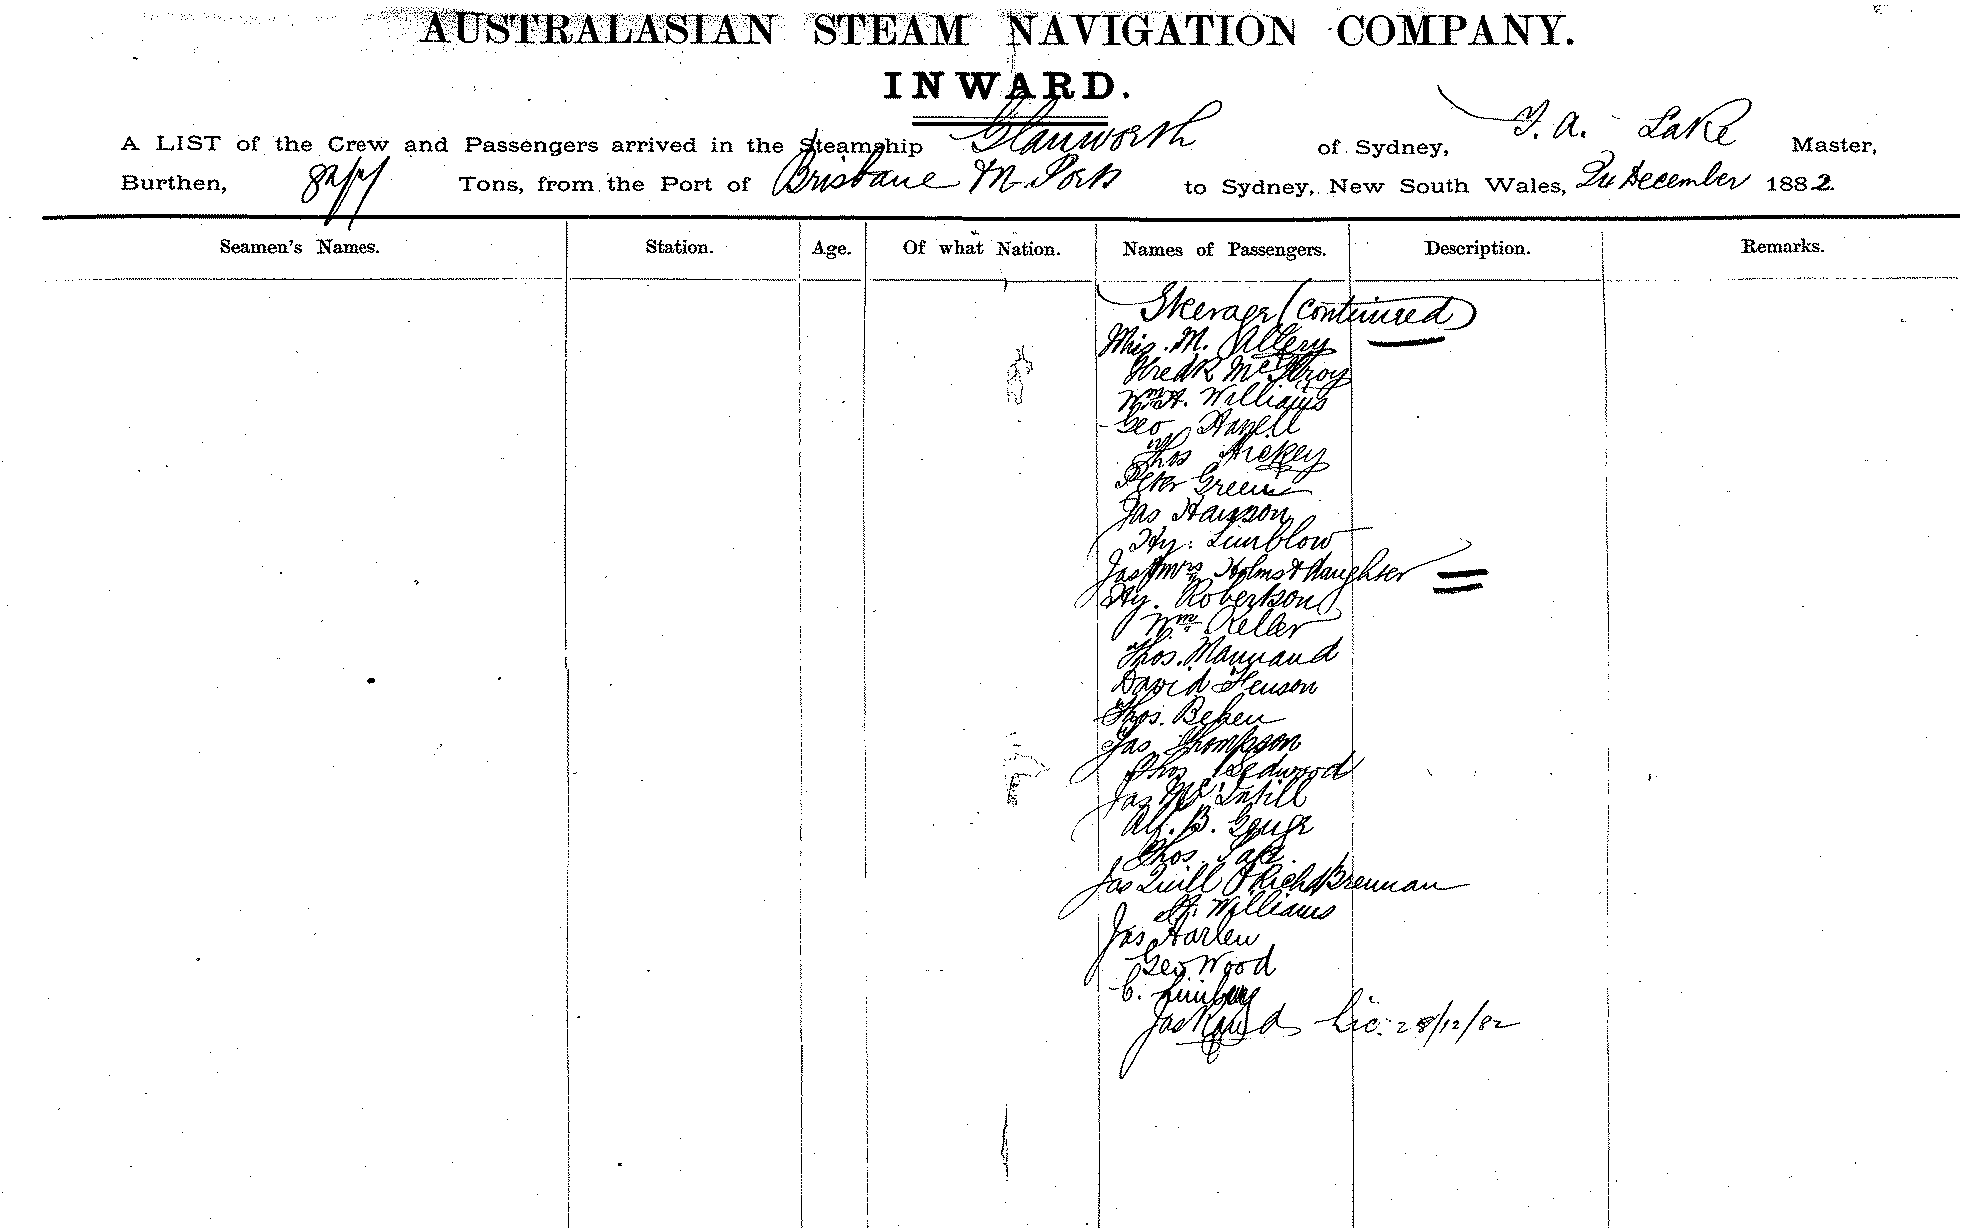 AUSTRALASIAN STEAM NAVIGATION COMPANY.
INWARD.
A LIST of the Crew and Passengers arrived in the Steamship Glanworth of Sydney, T. A. Lake Master,
Burthen, Tons, from the Port of Brisbane & M Port to Sydney, New South Wales, 24 December 1882
Seamen's Names. Station. Age. Of what Nation. Names of Passengers. Description. Remarks.
Steerage (continued)
Miss. M. Allery
Fredk McIlroy
Wm H. Williams
Geo
Thos Hickey
Peter Green
Jas Hanson
Hy. Limblow
Jas & Mrs Holms & daughter
Hy. Robertson
Wm Keller
Thos. Mannand
David Henson
Thos. Behen
Jas Thompson
Thos Ledwood
Jas Mc
Alf. B.
Thos
Jas Quill & Richd Brennan
Williams
Jas Harlen
Geo Wood
C.
Jas 28/12/82